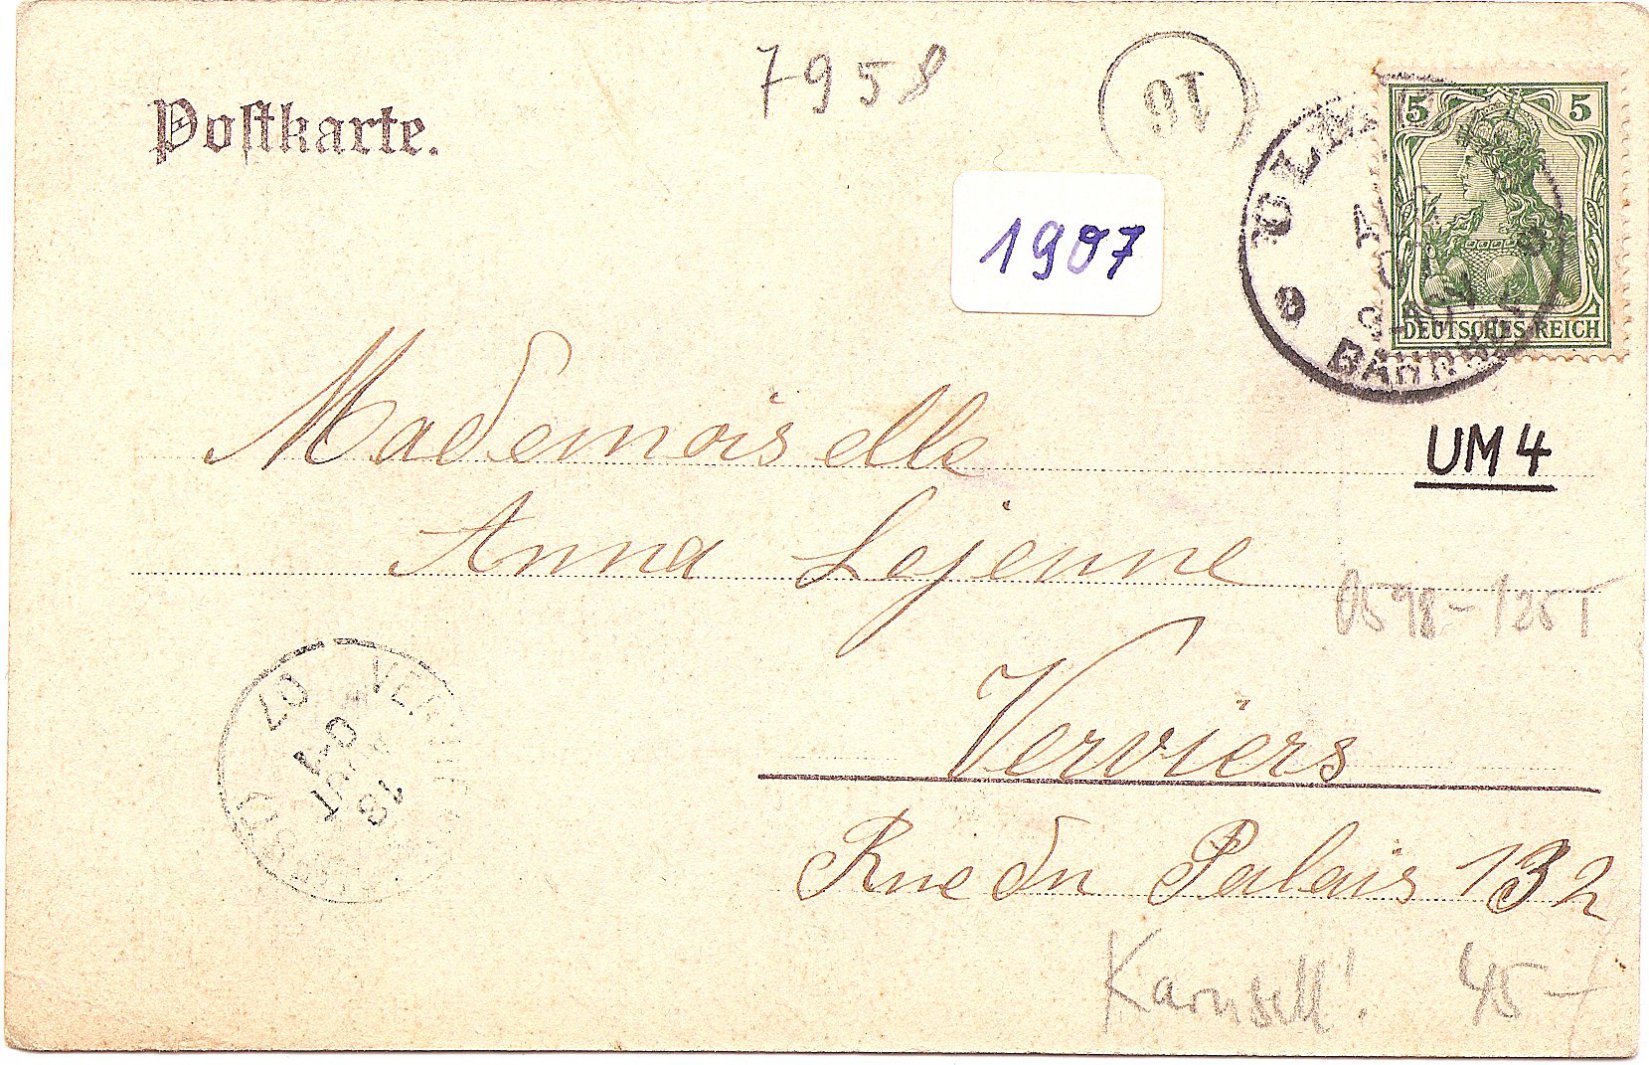 Postkarte.
7958
16
1907
5 5
DEUTSCHES REICH
ULM
BAHNHOF
UM 4
Mademoiselle
Anna Lejeune
Verviers
Rue du Palais 132
07
Karussell! 45-